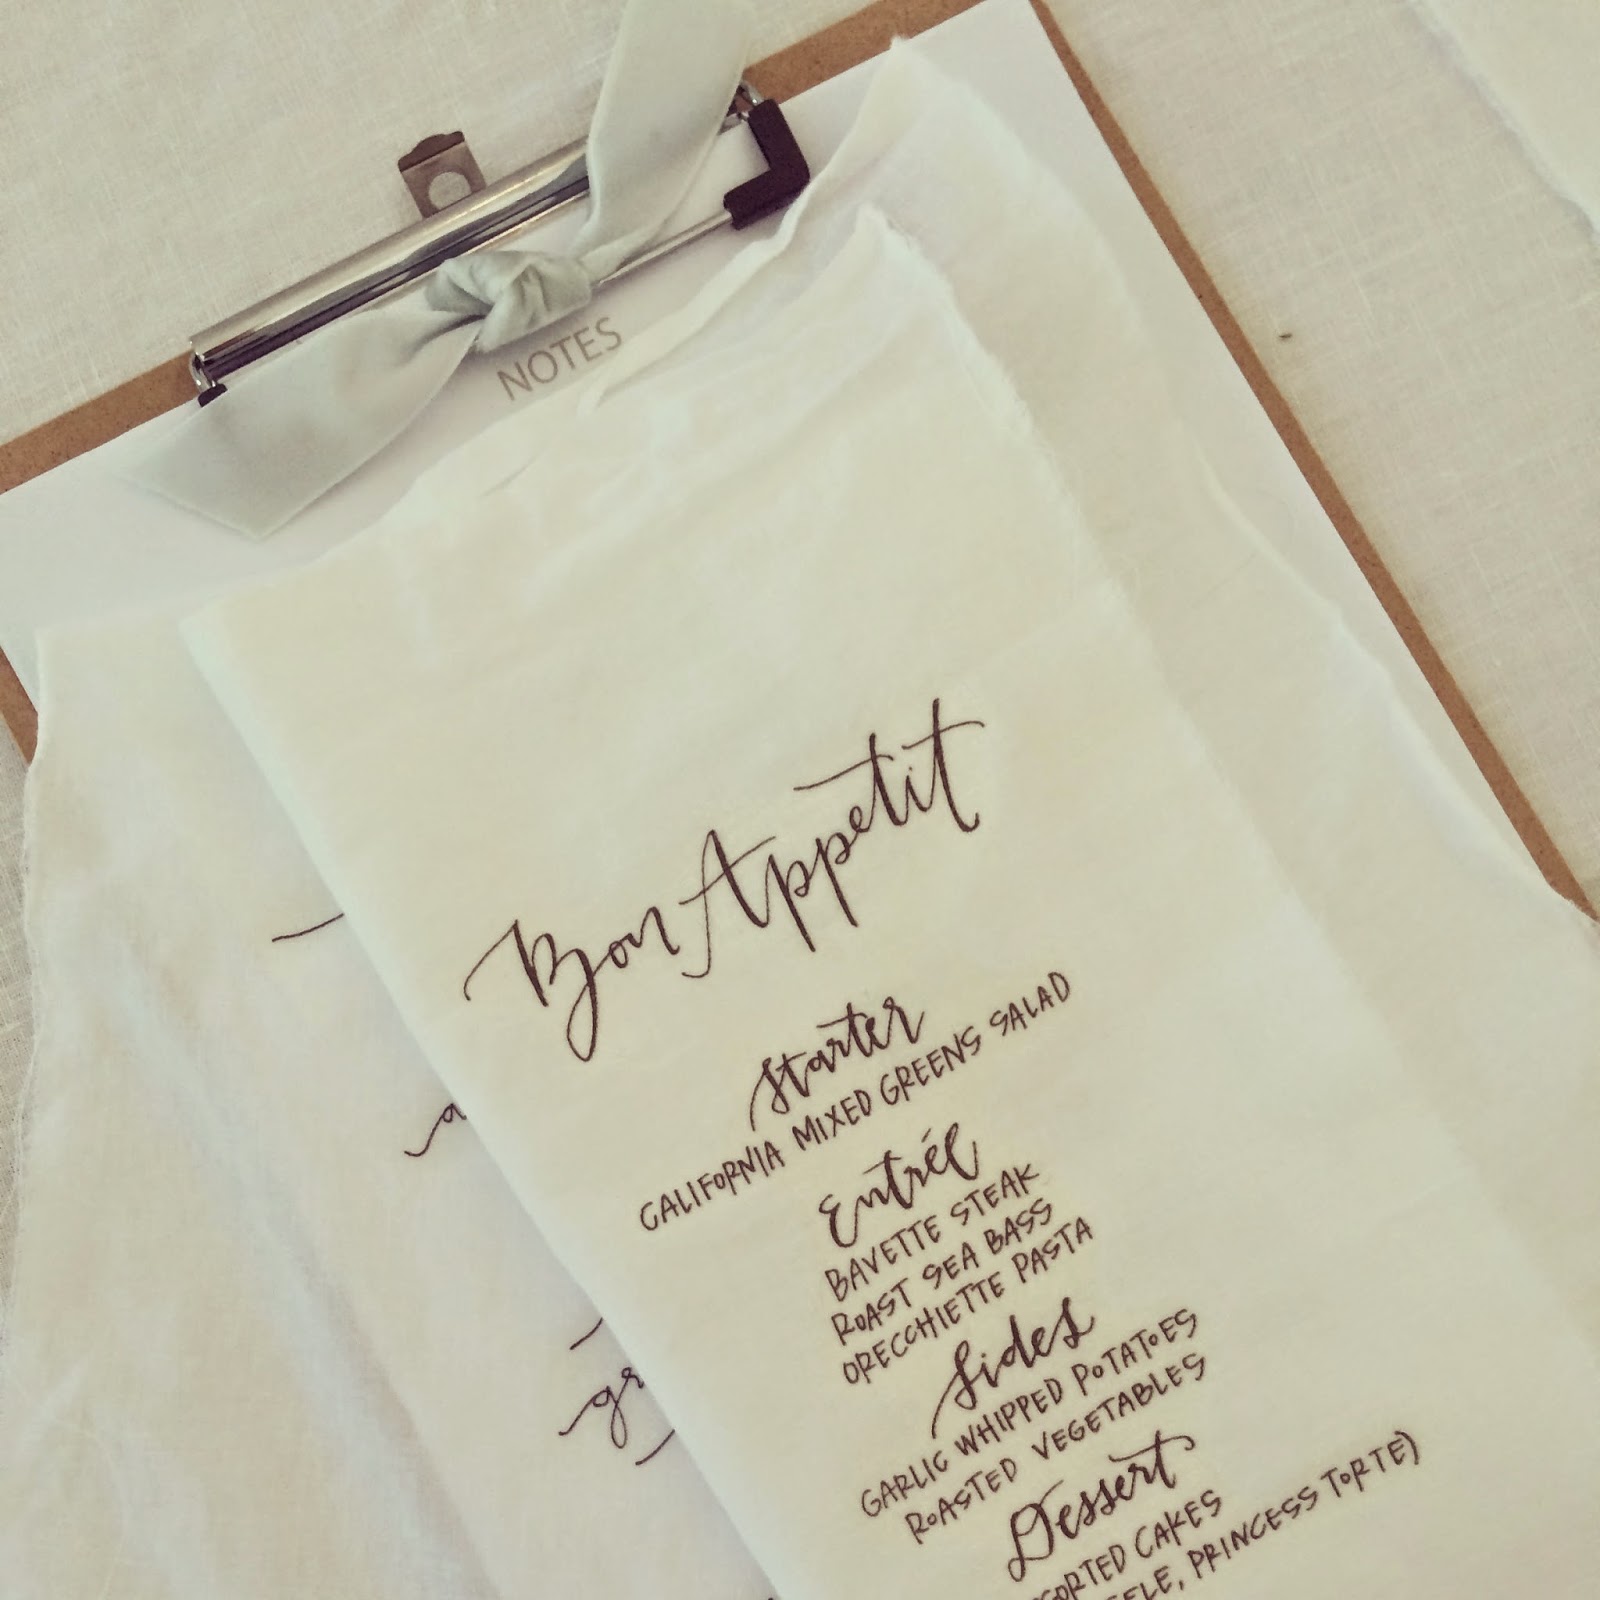 NOTES
Bon Appetit
Starter
CALIFORNIA MIXED GREENS SALAD
Entrée
BAVETTE STEAK
ROAST SEA BASS
ORECCHIETTE PASTA
Sides
GARLIC WHIPPED POTATOES
ROASTED VEGETABLES
Dessert
CAKES
PRINCESS TORTE)